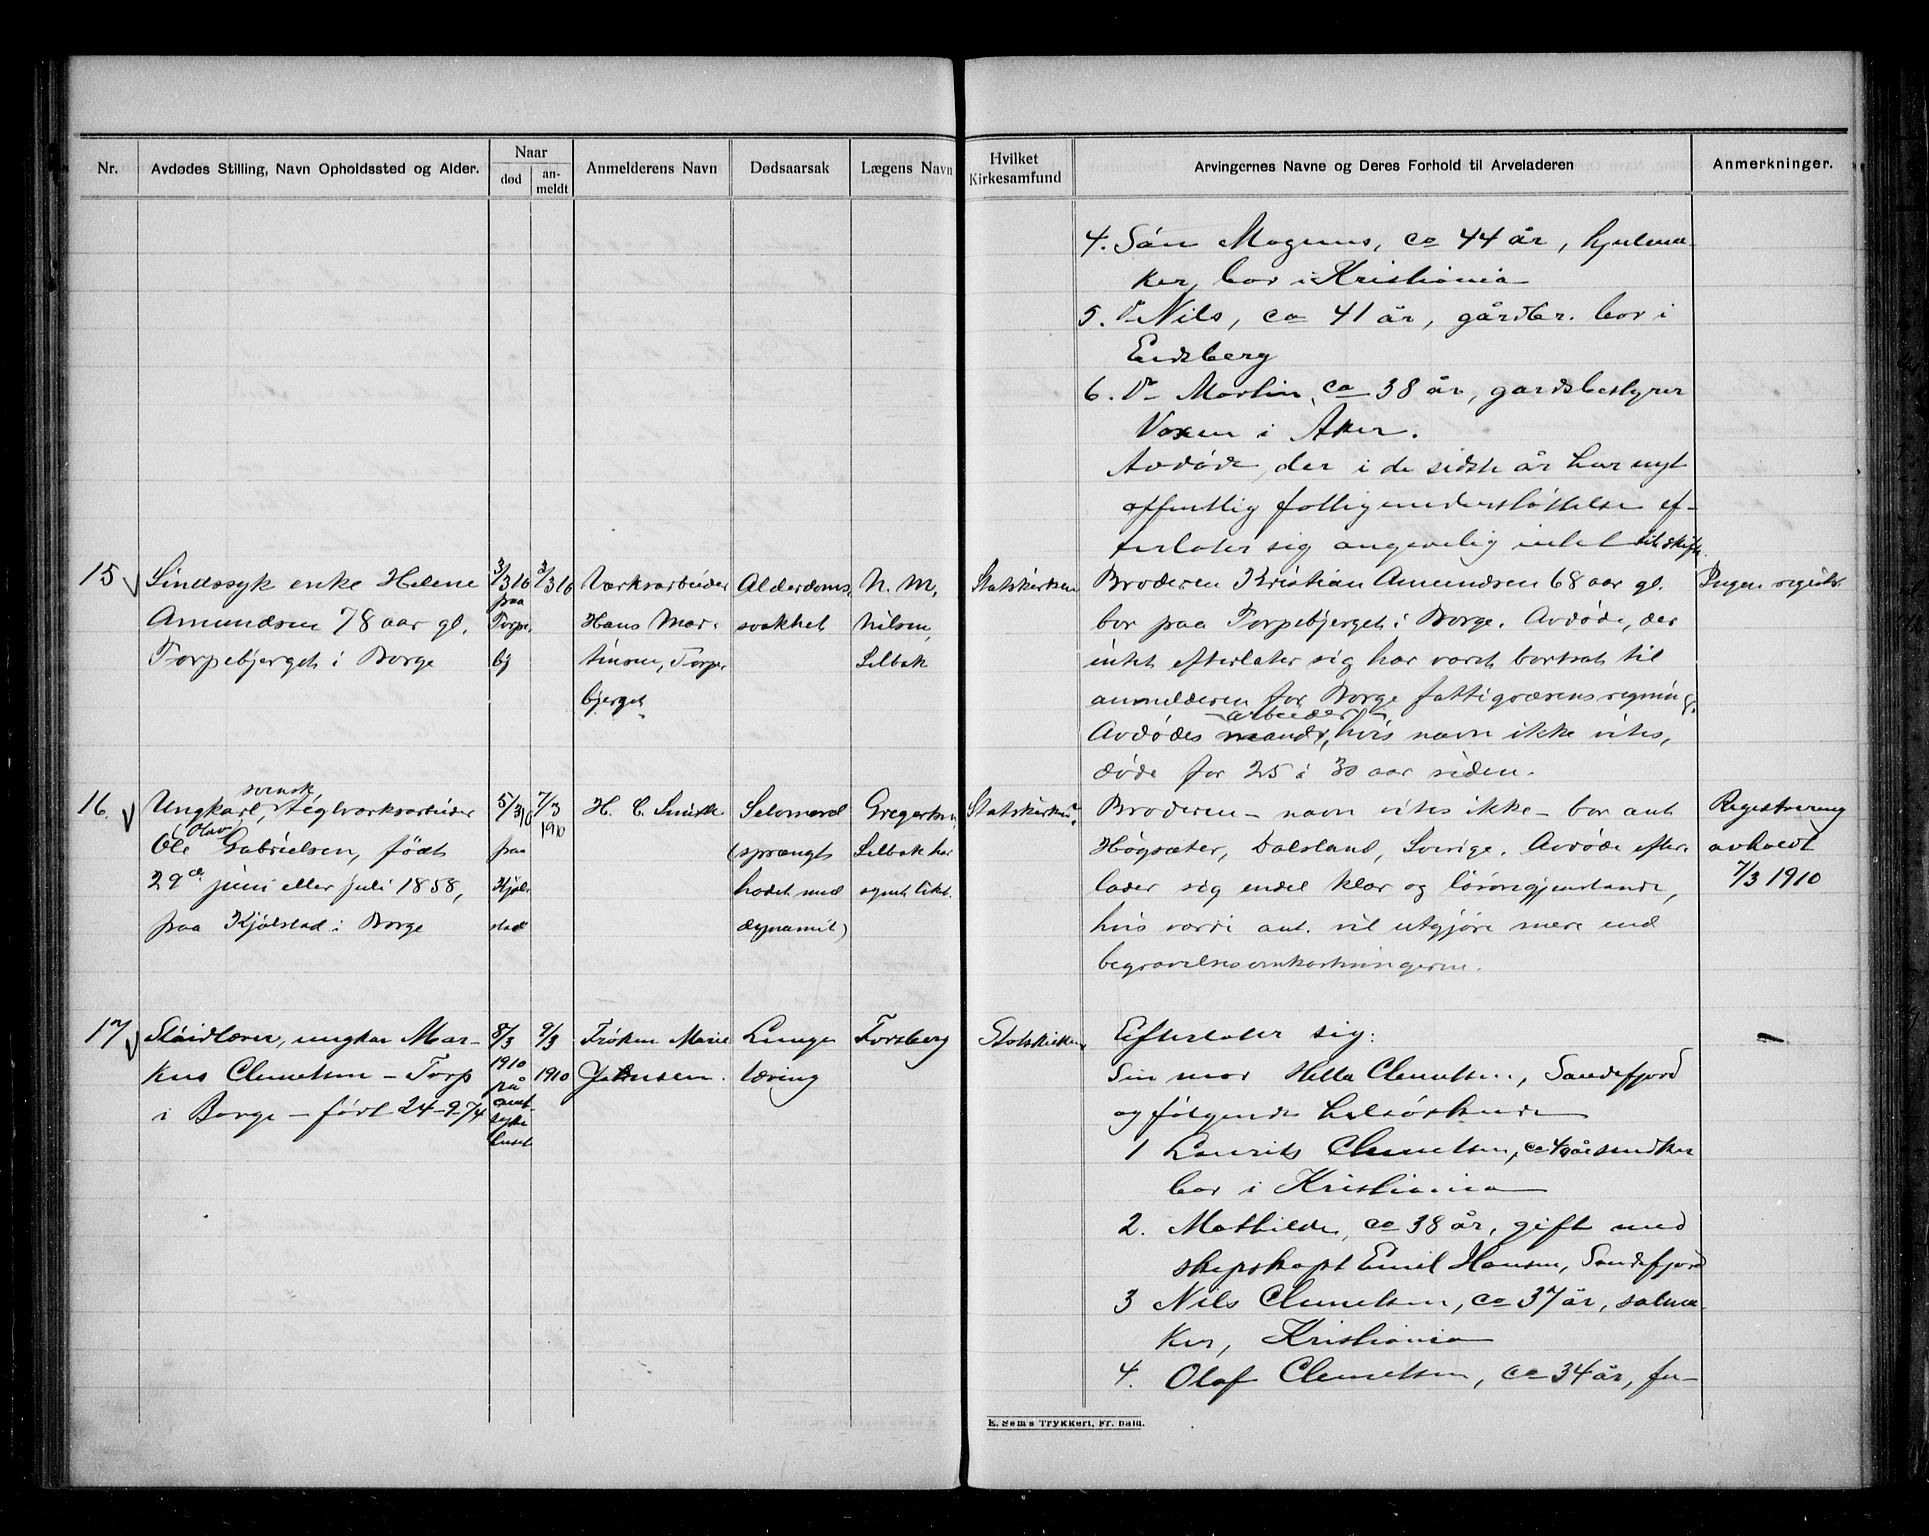 Nr.
Avdødes Stilling, Navn Opholdssted og Alder.
Naar
død
an-
meldt
Anmelderens Navn
Dødsaarsak
Lægens Navn
Hvilket
Kirkesamfund
Arvingernes Navne og Deres Forhold til Arveladeren
Anmerkninger.
4. Søn Magnus, ca 44 år, hjulma-
ker, bor i Kristiania
5. Do Nils, ca 41 år, gårdbr. bor i
Eidsberg
6. Do Martin, ca 38 år, gardsbestyrer
Voxen i Aker.
Avdøde, der i de sidste år har nyt
offentlig fattigunderstøttelse ef-
terlater sig angivelig intet til skifte.
15
Sindssyk enke Helene
Amundsen 78 aar gl.
Torpebjerget i Borge
3/3 10
paa
Torpe-
bj
3/3 10
Værksarbeider
Hans Mar-
tinsen, Torpe
bjerget
Alderdoms-
svakhet
N. M.
Nilsen,
Selbak
Statskirken
Broderen Kristian Amundsen 68 aar gl.
bor paa Torpebjerget i Borge. Avdøde, der
intet efterlater sig har været bortsat til
anmelderen for Borge fattigvæsens regning.
arbeider
Avdødes mand, hvis navn ikke vites,
døde for 25 à 30 aar siden.
Ingen registr.
16.
svensk
Ungkarl, teglværksarbeider
(Olav)
Ole Gabrielsen, født
29de juni eller juli 1858,
paa Kjølstad i Borge
5/3 10
paa
Kjøl-
stad
7/3
1910
H. C. Smith
Selvmord
(sprængt
hodet med
dynamit)
Gregertsen,
Selbak har
synet liket.
Statskirken?
Broderen – navn vites ikke – bor ant.
Høgsæter, Dalsland, Sverige. Avdøde efter-
lader sig endel klær og løsøregjenstande,
hvis værdi ant. vil utgjøre mere end
begravelsesomkostningerne.
Registrering
avholdt
7/3 1910
17
Sløidlærer, ungkar Mar-
kus Clemetsen – Torp
i Borge – født 24-9-74
8/3
1910
på
amt-
syke
huset
9/3
1910
Frøken Marie
Johnsen.
Lunge
tæring
Forsberg
Statskirken
Efterlater sig:
Sin mor Clemetsen, Sandefjord
og følgende helsøskende
1 Laurits Clemetsen, ca 40 år snedker
bor i Kristiania
2. Mathilde, ca 38 år, gift med
skipskapt Emil Hansen, Sandefjord
3 Nils Clemetsen, ca 37 år, salma-
ker, Kristiania
4. Olaf Clemetsen, ca 34 år, fa-
E. Sem's Trykkeri, Fr. hald.